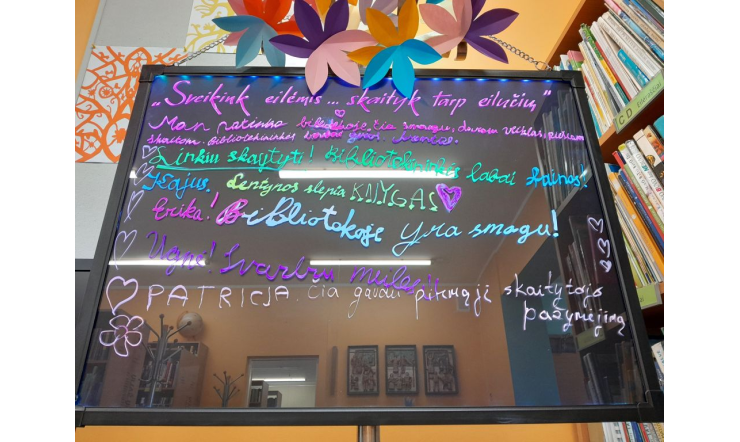 „Sveikink eilėmis... skaityk tarp eilučių"
Man patinka bibliotekoje, čia smagu, daug
skaitom. Bibliotekininkės labai geros
Linkiu skaytyti! Bibliotekininkės labai šaunos!
lentynos slepia KNYGAS
Erika! Bibliotekoje yra smagu!
Ugnė! Svarbu
PATRICJA. čia gavau pirmąjį skaitytojo
pažymėjimą
CD